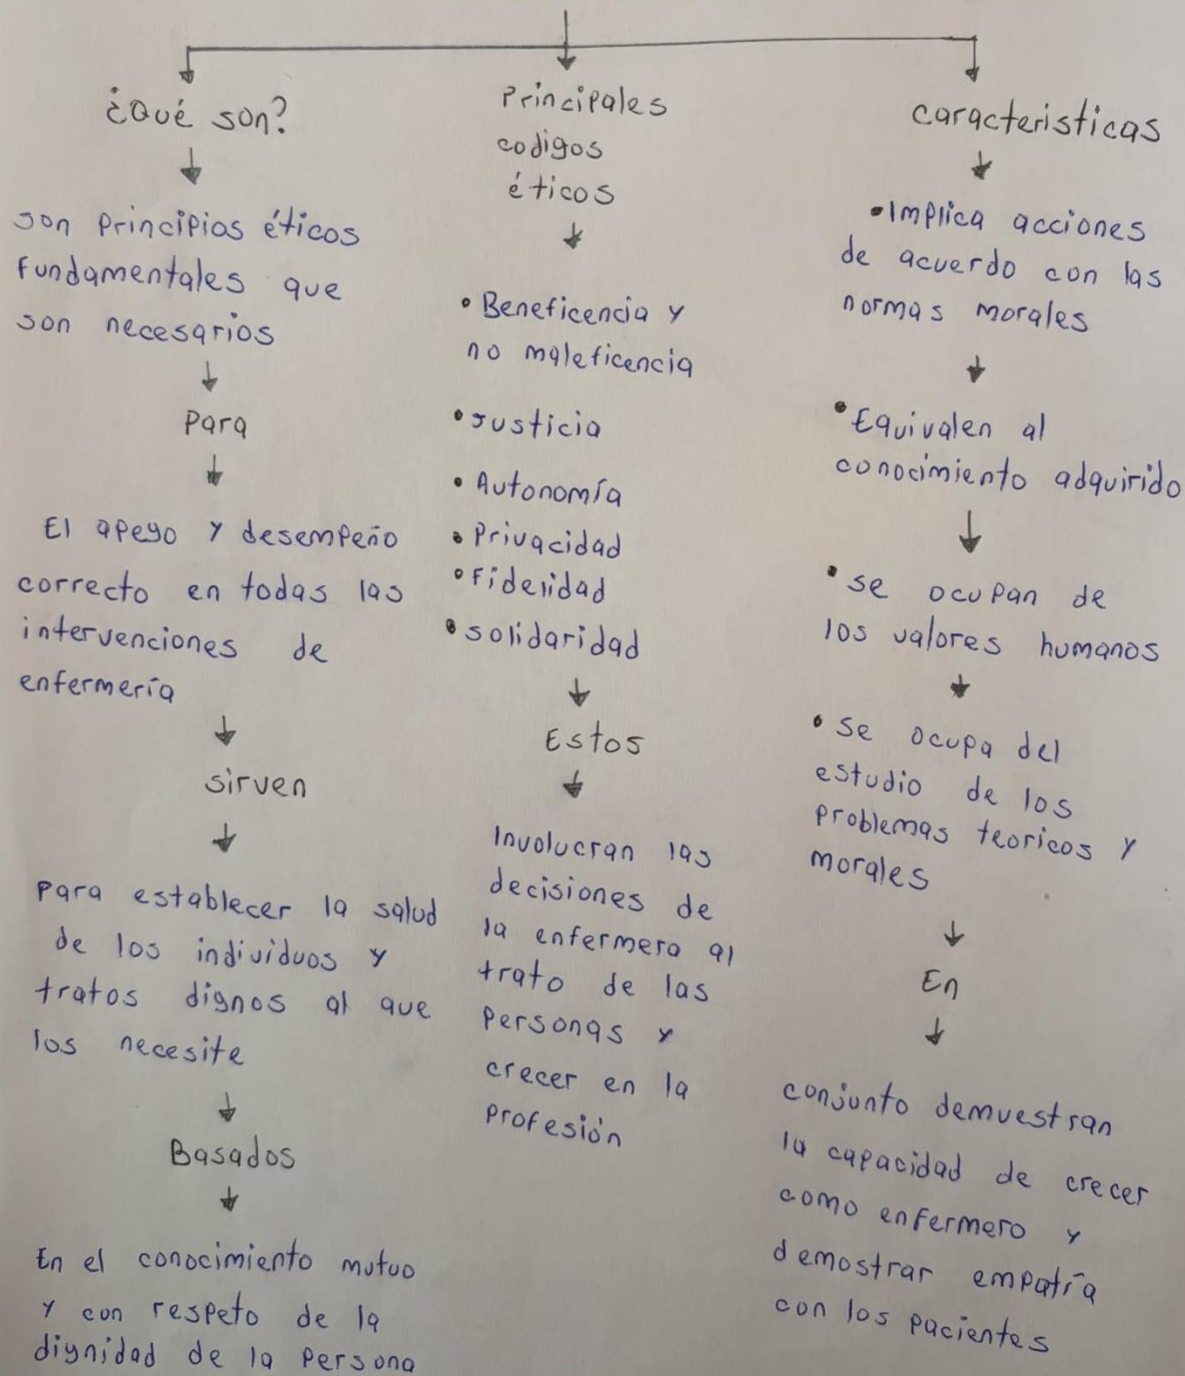 ¿Qué son?
son principios éticos
fundamentales que
son necesarios
Para
El apego y desempeño
correcto en todas las
intervenciones de
enfermería
sirven
para establecer la salud
de los individuos y
tratos dignos al que
los necesite
Basados
En el conocimiento mutuo
y con respeto de la
dignidad de la persona
Principales
codigos
éticos
• Beneficencia y
no maleficencia
• Justicia
• Autonomía
• Privacidad
• Fidelidad
• solidaridad
Estos
Involucran las
decisiones de
la enfermera al
trato de las
personas y
crecer en la
Profesión
caracteristicas
• Implica acciones
de acuerdo con las
normas morales
• Equivalen al
conocimiento adquirido
• se ocupan de
los valores humanos
• se ocupa del
estudio de los
problemas teoricos y
morales
En
conjunto demuestran
la capacidad de crecer
como enfermero y
demostrar empatía
con los pacientes